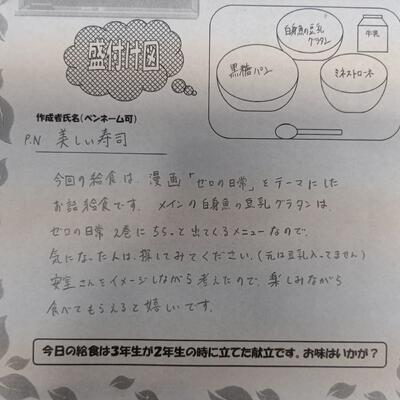 盛付け図
白身魚の豆乳
グラタン
牛乳
黒糖パン
ミネストローネ
作成者氏名(ペンネーム可)
P.N 美しい寿司
今回の給食は、漫画「ゼロの日常」をテーマにした
お話給食です。メインの白身魚の豆乳グラタンは、
ゼロの日常2巻にちらっと出てくるメニューなので、
気になった人は、探してみてください。(元は豆乳入ってません)
安室さんをイメージしながら考えたので、楽しみながら
食べてもらえると嬉しいです。
今日の給食は3年生が2年生の時に立てた献立です。お味はいかが?